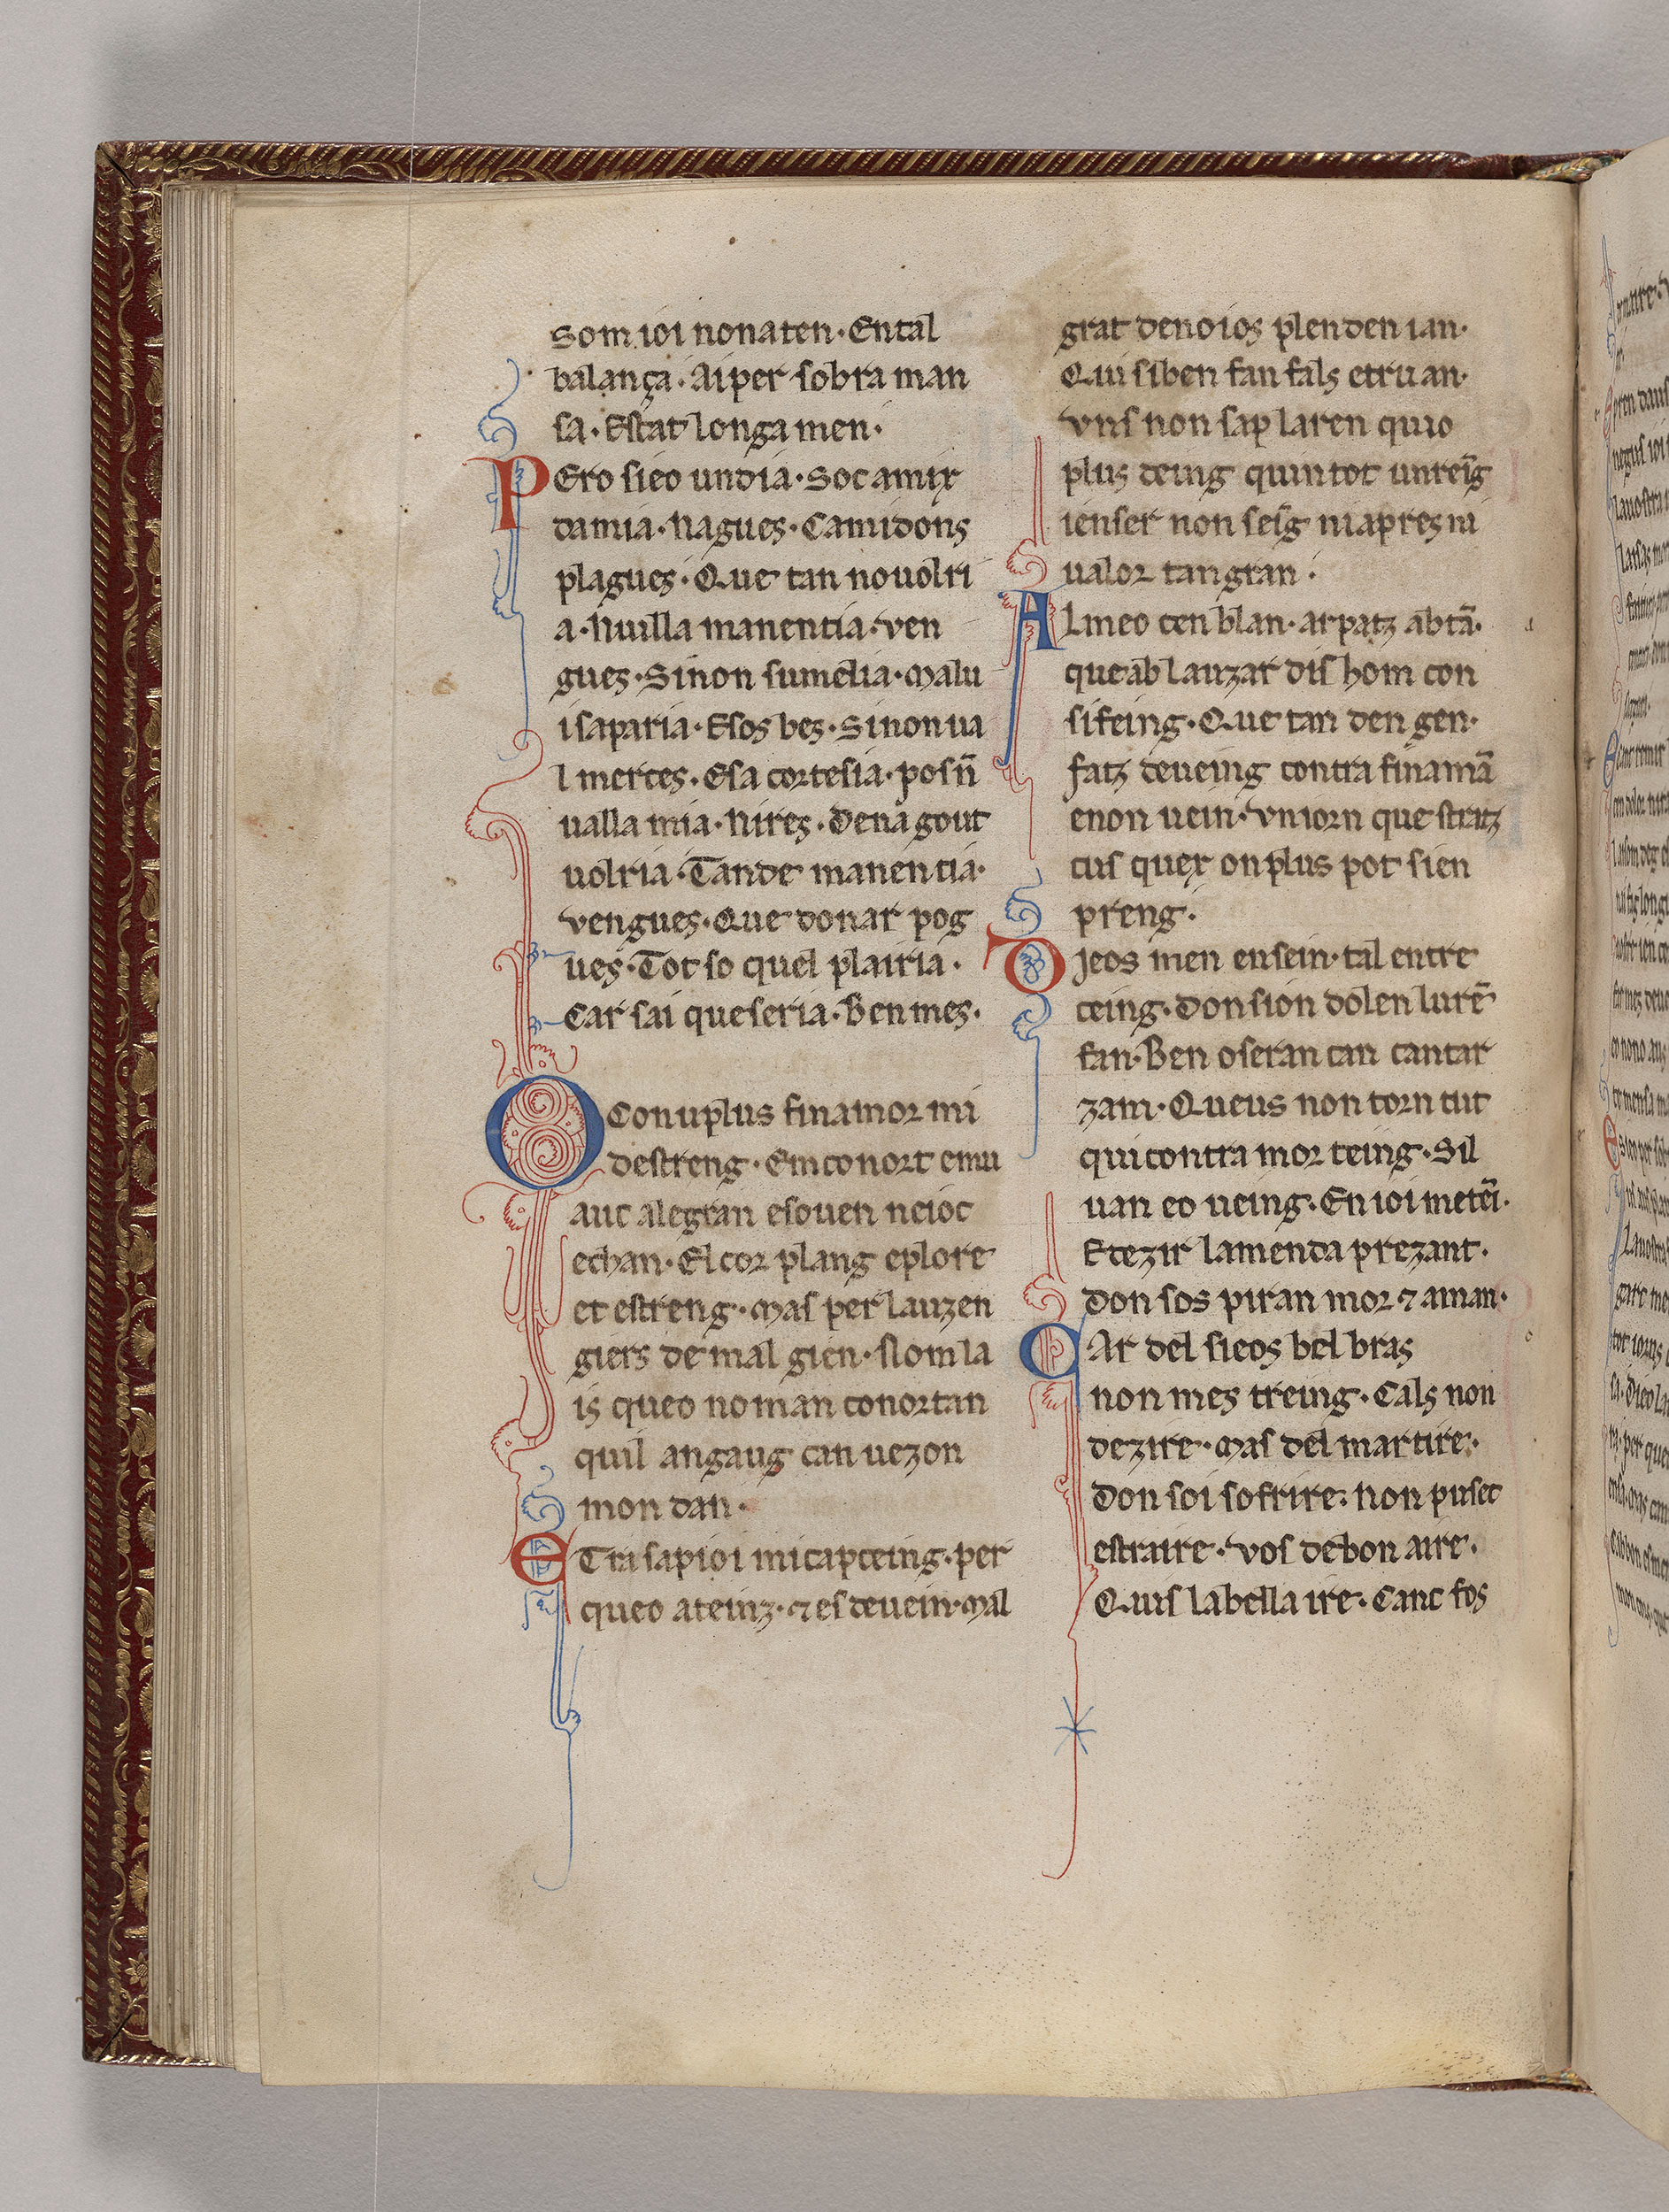 som ioi non aten · En tal
balança · Ai per sobra man
sa · Estat longa men ·
PEro sieo un dia · Soc amix
damia · Nagues · Camidons
plagues · Que tan no uolri
a · Nuilla manentia · ven
gues · Si non sumelia · Malu
isa paria · Esos bes · Si non ua
l merces · Esa cortesia · pos n̄
ualla mia · Nires · Dena gout
uolria · Tan de manentia ·
vengues · Que donar pog
ues · Tot so quel plairia ·
Car sai que seria · Ben mes ·
OCon u plus finamor mi
destreng · Em conort e mu
auc alegran e souen ne ioc
e chan · El cor plang e plore
et estreng · Mas per lauzen
giers de mal gien · No m la
is queo no man conortan
quil an gaug can uezon
mon dan ·
ETri sap ioi mi cap teing · per
queo ateinz · ⁊ es deuein · mal
grat denoios plenden ian ·
Qui si ben fan fals e truan ·
vns non sap laren quio
plus teing quin tot un reīg
ienser non seīg ni a pres ni
ualor tan gran ·
AL meo cen blan · ar patz abtā ·
que ab lauzar dis hom con
si feing · Que tan den gen ·
fatz deueing contra finamā
e non uein · vn iorn que stratz
cus quex on plus pot si en
preng ·
Dieos men ensein · tal entre
teing · Don sion dolen lurē
fan · Ben oseran tan cantar
zam · Que us non torn tut
qui contra mor teing · Sil
uan eo ueing · En ioi me teī ·
E tezir lamenta prezant ·
Don sos piran mor ⁊ aman ·
CAr del sieos bel bras
non mes treing · Cals non
dezire · Mas del martire ·
Don soi sofrire : non puset
estraire · vos debon aire ·
Quis la bella ire · Canc fos